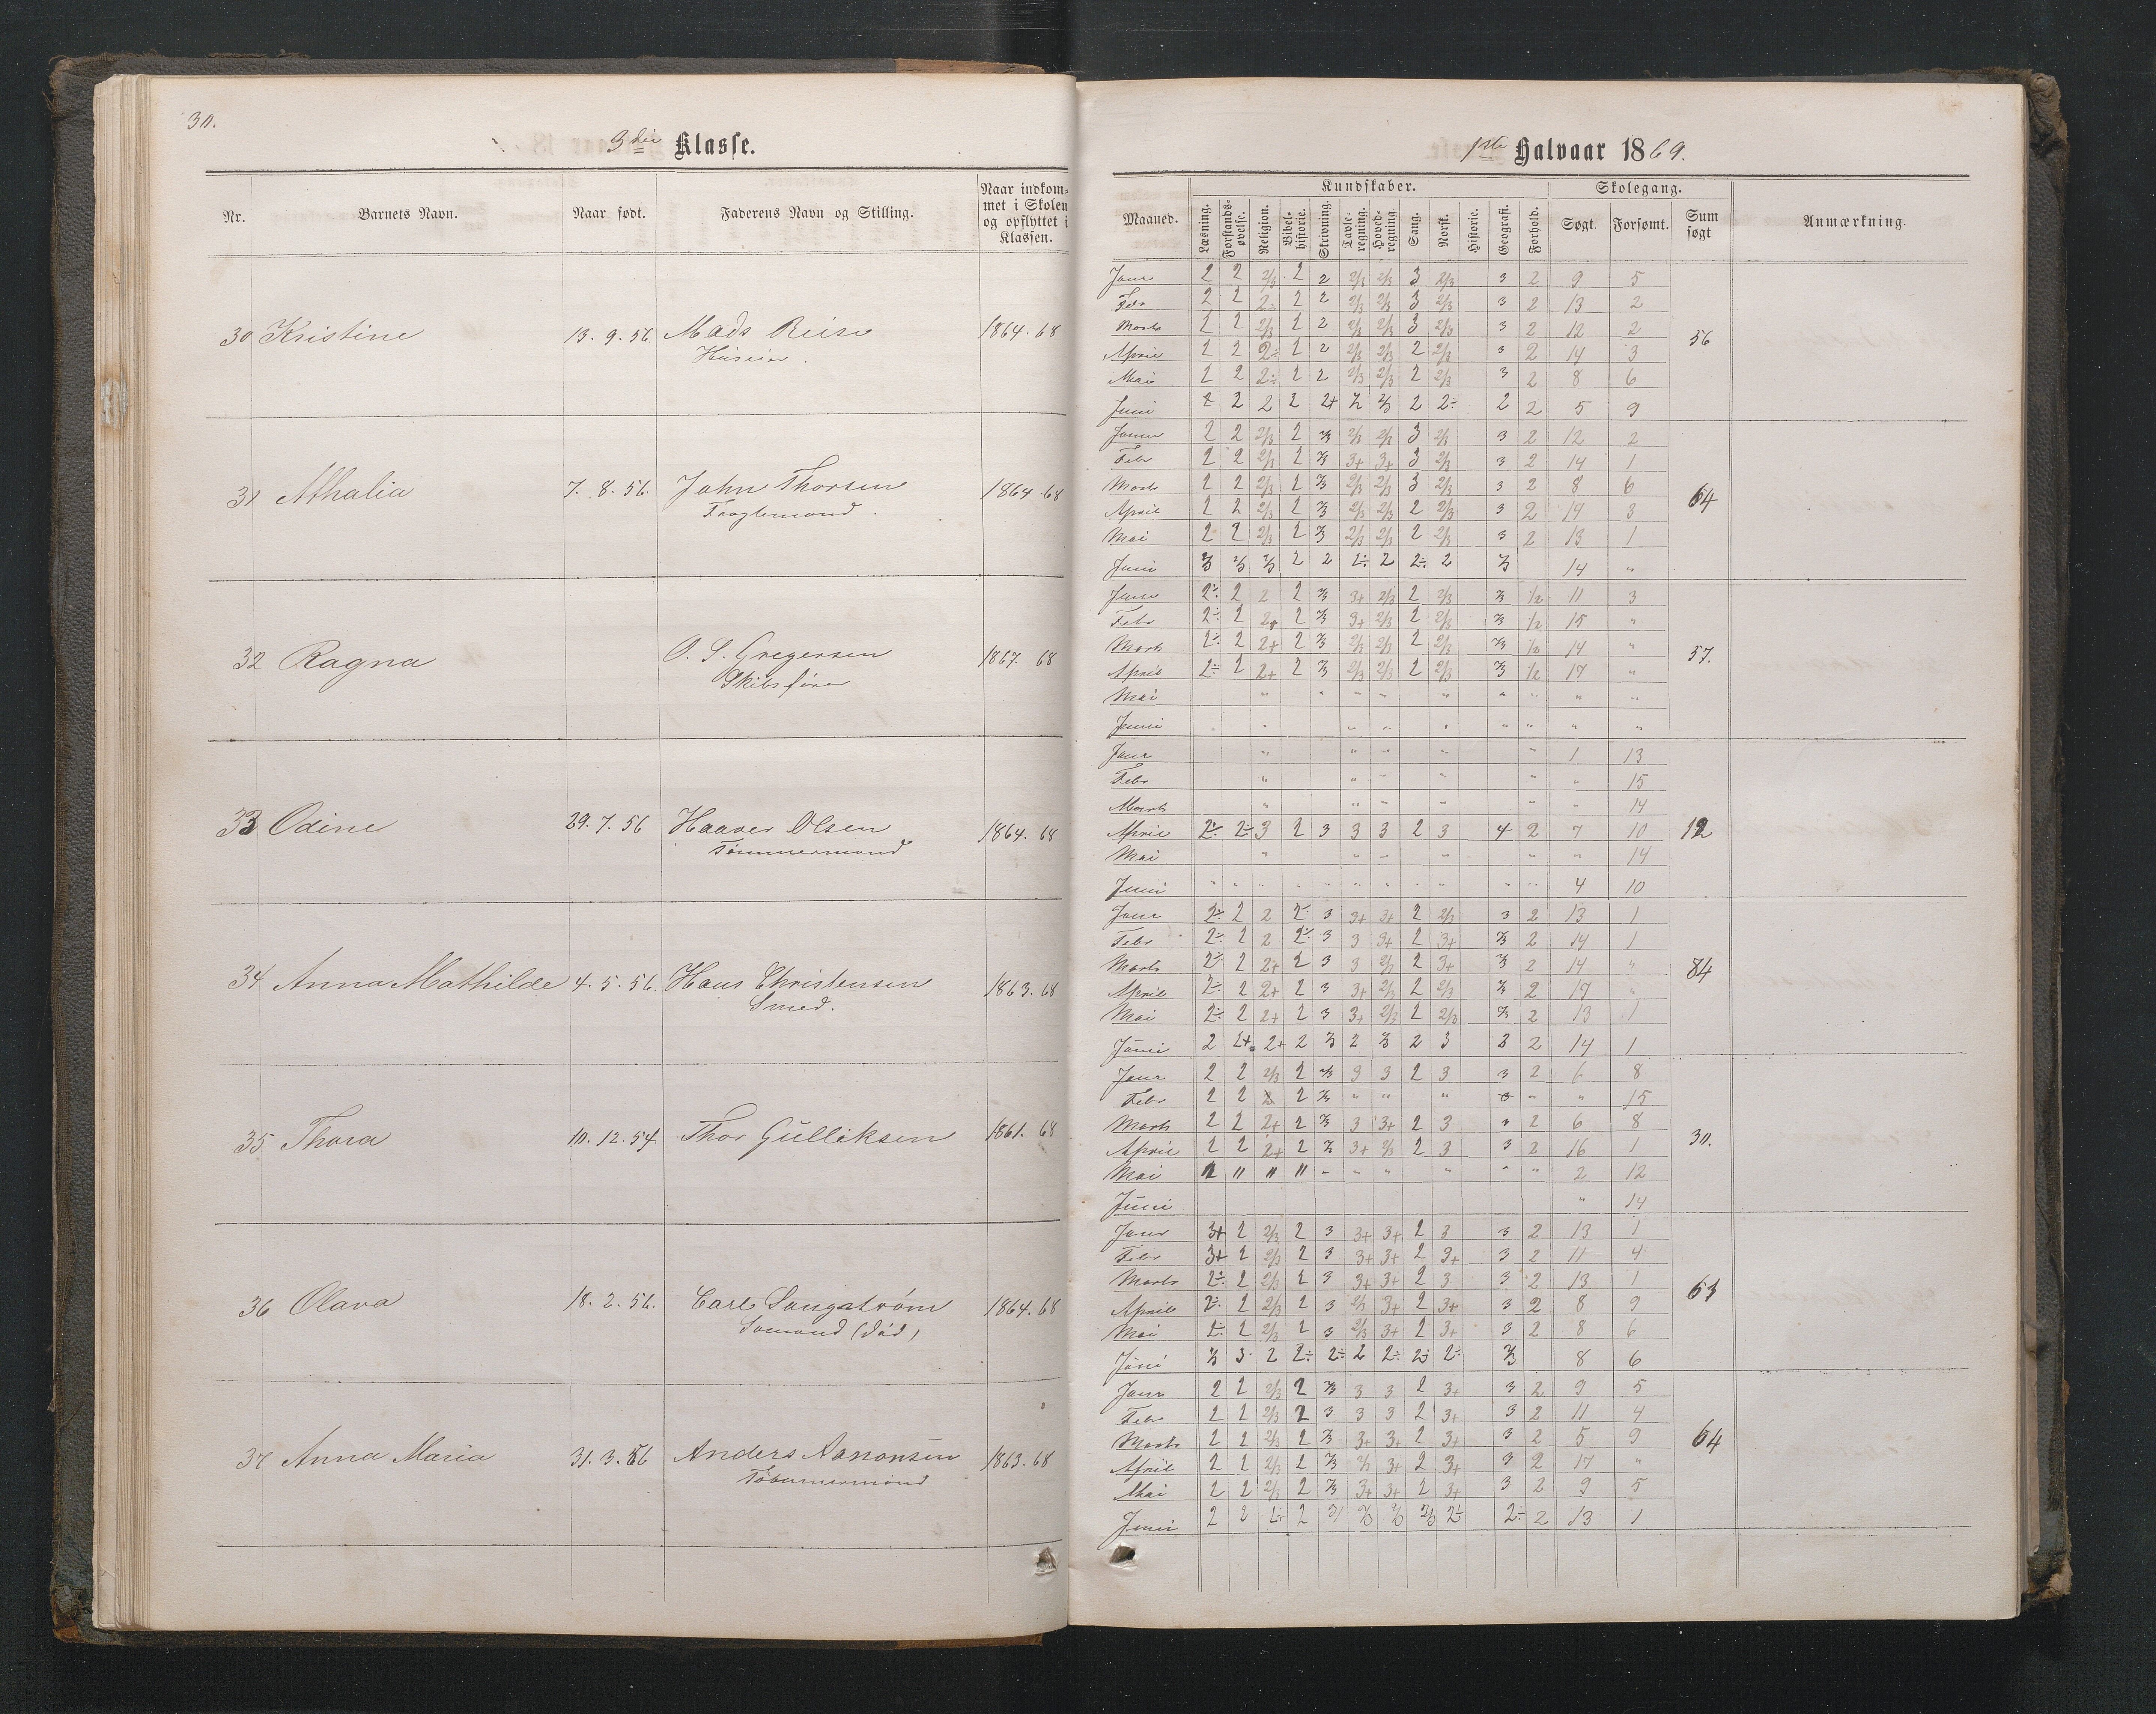 30.
3die Klasse.
Nr. Barnets Navn. Naar født. Faderens Navn og Stilling. Naar indkom-
met i Skolen
og opflyttet i
Klassen.
30 Kristine 13. 9. 56 Mads 1864. 68
31 Athalia 7. 8. 56. John Thorsen 1864. 68
32 Ragna O. S. Gregersen 1867. 68
Skibsfører
33 Odine 29. 7. 56 Haaver Olsen 1864. 68
Tømmermand
34 Anna Mathilde 4. 5. 56. Hans Christensen 1863. 68
Smed.
35 Thora 10. 12. 54. Thor Gulliksen 1861. 68
36 Olava 18. 2. 56. Carl 1864. 68
Sømand (død)
37 Anna Maria 31. 3. 56 Anders Aanonsen 1863. 68
Tømmermand
1ste Halvaar 1869.
Kundskaber. Skolegang.
Maaned. Læsning. Forstands-
øvelse. Religion. Bibel-
historie. Skrivning. Tavle-
regning. Hoved-
regning. Sang. Norsk. Historie. Geografi. Forhold. Søgt. Forsømt. Sum
søgt Anmærkning.
Janr 2 2 2/3 2 2 2/3 2/3 3 2/3 3 2 9 5
Febr 2 2 2÷ 2 2 2/3 2/3 3 2/3 3 2 13 2
Marts 2 2 2/3 2 2 2/3 2/3 3 2/3 3 2 12 2
56
April 2 2 2÷ 2 2 2/3 2/3 2 2/3 3 2 14 3
Mai 2 2 2÷ 2 2 2/3 2/3 2 2/3 3 2 8 6
Juni 2 2 2 2 2+ 2/3 2/3 2 2÷ 2 2 5 9
Januar 2 2 2/3 2 2/3 2/3 2/3 3 2/3 3 2 12 2
Febr 2 2 2/3 2 2/3 3+ 3+ 3 2/3 3 2 14 1
Marts 2 2 2/3 2 2/3 2/3 2/3 3 2/3 3 2 8 6
64
April 2 2 2/3 2 2/3 2/3 2/3 2 2/3 3 2 14 3
Mai 2 2 2/3 2 2/3 2/3 2/3 2 2/3 3 2 13 1
Juni 2/3 2/3 2/3 2 2 2÷ 2 2÷ 2 2/3 14 "
Janr 2÷ 2 2 2 2/3 3+ 2/3 2 2/3 2/3 1/2 11 3
Febr 2÷ 2 2+ 2 2/3 3+ 2/3 2 2/3 2/3 1/2 15 "
Marts 2÷ 2 2+ 2 2/3 2/3 2/3 2 2/3 2/3 1/2 14 "
57.
April 2÷ 2 2+ 2 2/3 2/3 2/3 2 2/3 2/3 1/2 17 "
Mai " " " " " " " " "
Juni " " " " " " " "
Janr " " " " " 1 13
Febr " " " " " " 15
Marts " " " " " " 14
April 2÷ 2÷ 3 2 3 3 3 2 3 4 2 7 10 12
Mai " " " " " " 14
Juni " " " " " " " " " " " 4 10
Janr 2÷ 2 2 2÷ 3 3+ 3+ 2 2/3 3 2 13 1
Febr 2÷ 2 2 2÷ 3 3 3+ 2 3+ 2/3 2 14 1
Marts 2÷ 2 2+ 2 3 3 2/3 2 3+ 2/3 2 14 "
84
April 2÷ 2 2+ 2 3 3+ 2/3 2 2/3 2/3 2 17 "
Mai 2÷ 2 2+ 2 3 3+ 2/3 2 2/3 2/3 2 13 1
Juni 2 2+ 2+ 2 2/3 2 2/3 2 3 3 2 14 1
Janr 2 2 2/3 2 2/3 3 3 2 3 3 2 6 8
Febr 2 2 2 2 2/3 " " " 3 " " 15
Marts 2 2 2+ 2 2/3 3 3+ 2 3 3 2 6 8
30.
April 2 2 2+ 2 2/3 3+ 2/3 2 3 3 2 16 1
Mai 2 " " " " " " " " " 2 12
Juni " 14
Janr 3+ 2 2/3 2 3 3+ 3+ 2 3 3 2 13 1
Febr 3+ 2 2/3 2 3 3+ 3+ 2 3+ 3 2 11 4
Marts 2÷ 2 2/3 2 3 3+ 3+ 2 3 3 2 13 1
61
April 2÷ 2 2/3 2 3 2/3 3+ 2 3+ 3 2 8 9
Mai 2÷ 2 2/3 2 3 2/3 3+ 2 3+ 3 2 8 6
Juni 2/3 3 2 2÷ 2÷ 2 2÷ 2÷ 2÷ 2/3 8 6
Janr 2 2 2/3 2 2/3 3 3 2 3+ 3 2 9 5
Febr 2 2 2/3 2 3 3 3 2 3+ 3 2 11 4
Marts 2 2 2/3 2 2/3 3+ 3+ 2 3+ 3 2 5 9
64
April 2 2 2/3 2 2/3 2/3 3+ 2 3+ 3 2 17 "
Mai 2 2 2/3 2 2/3 3+ 3+ 2 3+ 3 2 9 5
Juni 2 2 2÷ 2 2/3 2/3 2/3 2÷ 2÷ 2 13 1